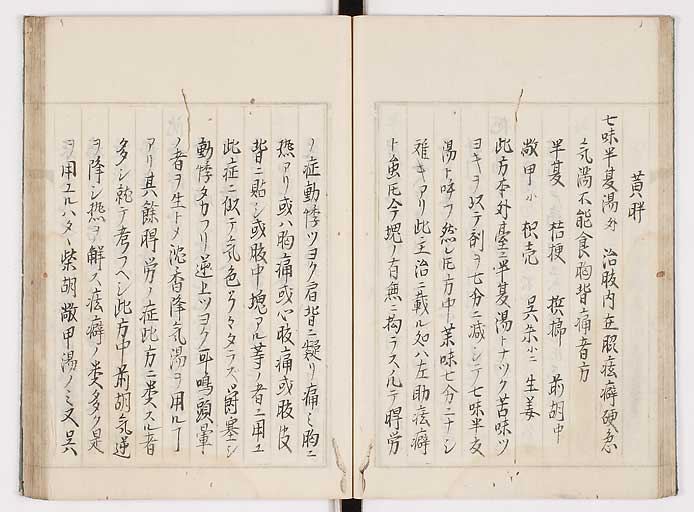 黄胖
七味半夏湯 外 治腹内左脇痃癖硬急
気満不能食胸背痛者方
半夏 桔梗 檳榔 前胡 中
鼈甲 小 枳壳 呉茱 小 生姜
此方本外臺ニ半夏湯トナツク苦味ツ
ヨキヲ以テ剤ヲ七分ニ減シテ七味半夏
湯ト呼フ然レ𪜈方中薬味七分ニナシ
難キアリ此主治ニ載ル如ハ左助痃癖
ト虽𪜈今塊ノ有無ニ拘ラス凡テ𦡀労
ノ症動悸ツヨク肩背ニ凝リ痛ミ胸ニ
熱アリ或ハ胸痛或心腹痛或肢皮
背ニ貼シ或腹中塊アル等ノ者ニ用ユ
此症ニ似テ気色ウツタラス鬱塞シ
動悸タカフリ逆上ツヨク耳鳴頭暈
ノ者ヲ生トメ沈香降気湯ヲ用ルヿ
アリ其餘𦡀労ノ症此方ニ類スル者
多シ就テ考フヘシ此方中前胡気逆
ヲ降シ熱ヲ解ス痃癖ノ類多ク是
ヲ用ユルハタヽ柴胡鼈甲湯ノミ又呉